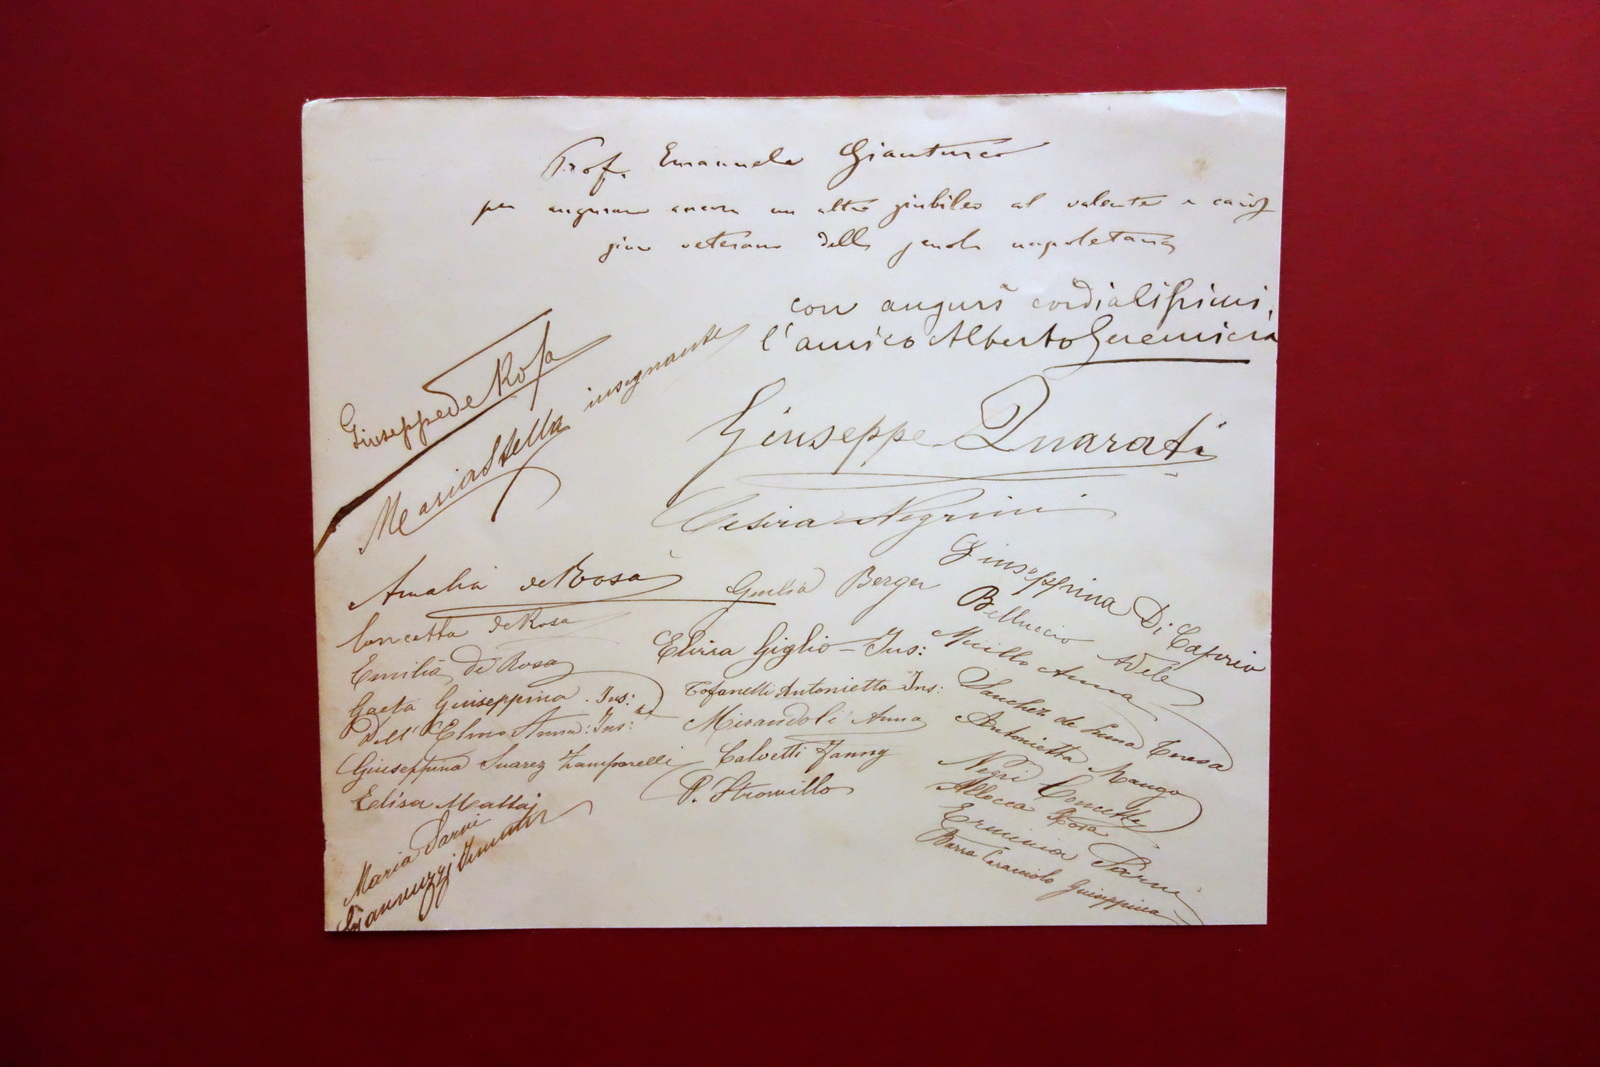 Prof. Emanuele Gianturco
per augurare ancora un altro giubileo al valente e
veterano della scuola napoletana
con augurî cordialissimi,
l'amico Alberto
Giuseppe de Rosa
Maria Stella insegnante
Giuseppe Quarati
Cesira Negrini
Amalia de Rosa
Giulia Berger
Giuseppina Di Caprio
Concetta de Rosa
Belluccio Adele
Emilia De Rosa
Elvira Giglio - Ins:
Miillo Anna
Gaeta Giuseppina. Ins:
Tofanelli Antonietta Ins:
Sanchez de Luna Teresa
Dell'Elmo Anna: Ins:
Mirandoli Anna
Antonietta Mango
Giuseppina Suarez Zamparelli
Calvetti Fanny
Negri Concetta
Elisa Mattei
P. Stromillo
Allocca Rosa
Maria Sarni
Erminia Sarni
Giannuzzi
Barra Caracciolo Giuseppina